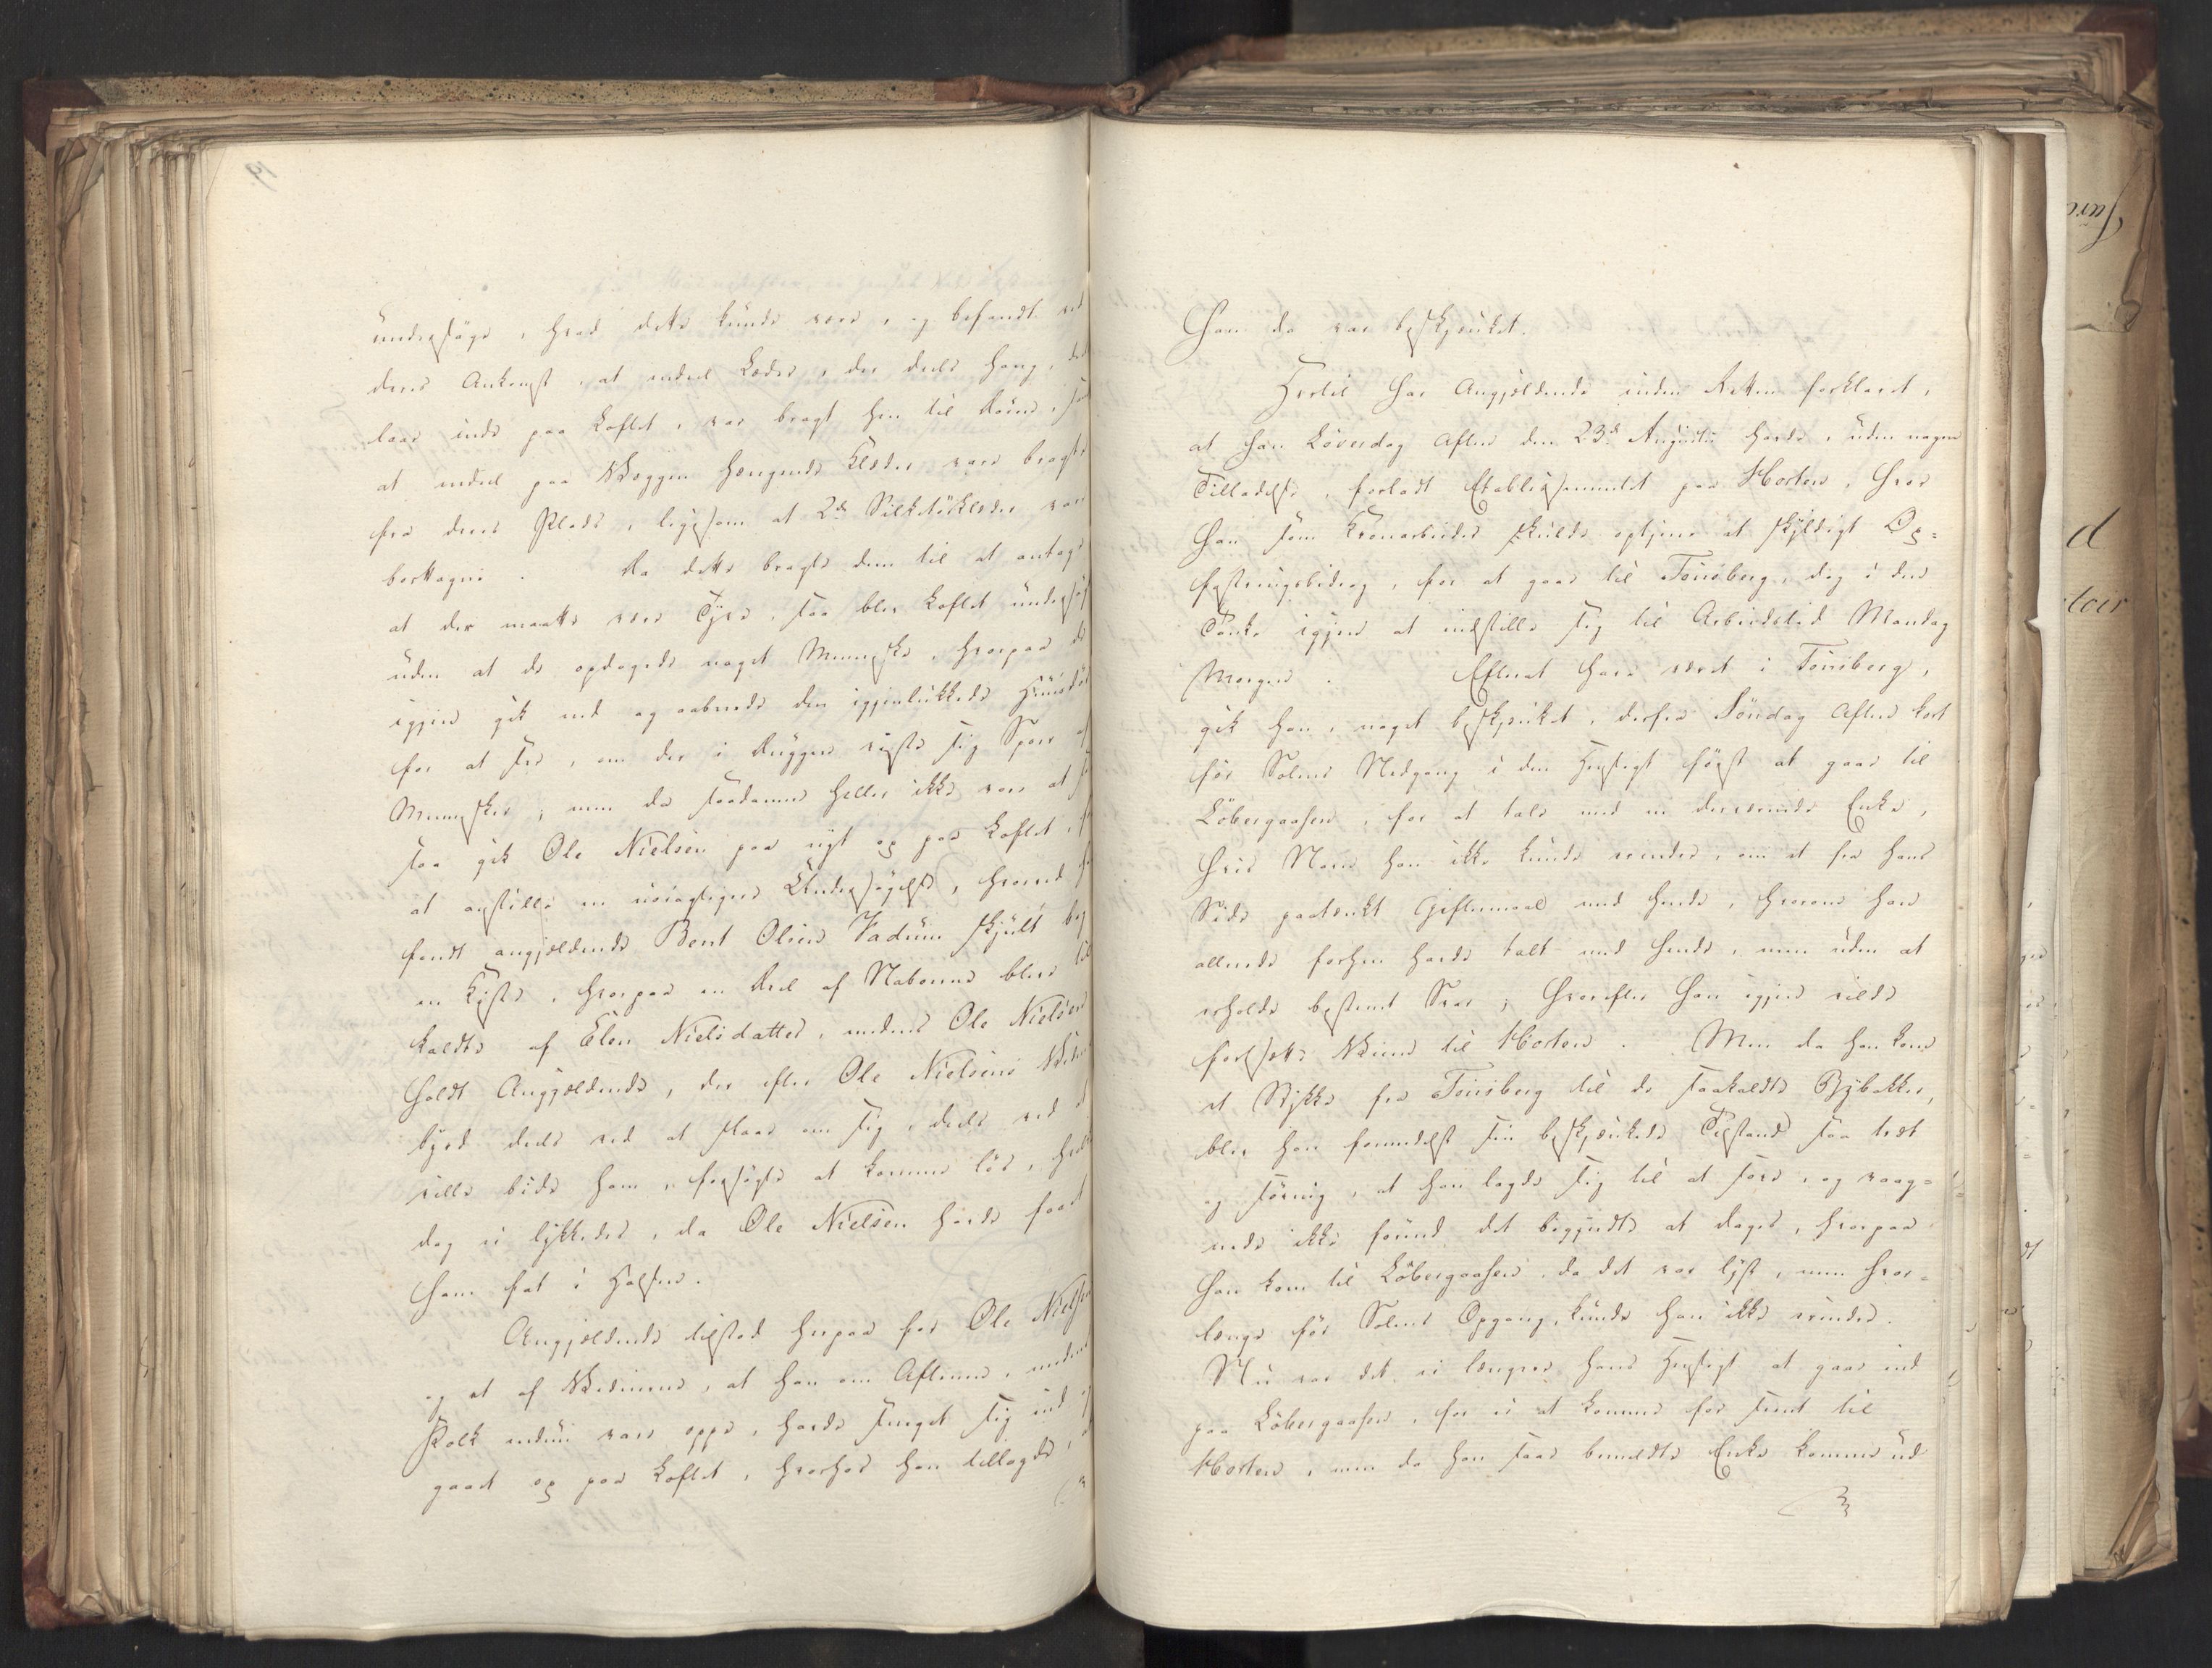 undersøge, hvad dette kunde være, og befandt ved
deres Ankomst, at endeel Læder, der deels hang, deels
laae inde paa Loftet, var bragt hen til Døren, samt
at endeel paa Væggen hængende Klæder vare bragte
fra deres Plads, ligesom at 2de Silketörklæder vare
borttagne. Da dette bragte dem til at antage
at der maatte være Tyve, saa blev Loftet undersøgt
uden at de opdagede noget Menneske, hvorpaa de
igjen gik ned og aabnede den igjenlukkede
for at see, om der i Duggen viiste sig Spor af
Mennesker; men da saadanne heller ikke vare at see
saa gik Ole Nielsen paa nyt op paa Loftet, for
at anstille en nøiagtigere Undersøgelse, hvorved han
fandt angjeldende Bent Olsen Vadum skjult bag
en Kiste, hvorpaa en Deel af Naboerne blev til
kaldte af Elen Nielsdatter, medens Ole Nielsen
holdt Angjeldende, der efter Ole Nielsens Vidnes
byrd deels ved at slaae om sig, deels ved at
ville bide ham, forsøgte at komme løs, hvilket
dog ei lykkedes, da Ole Nielsen havde faaet
ham fat i Halsen.
Angjeldende tilstod herpaa for Ole Nielsen
og et af Vidnerne, at han om Aftenen, medens
Folk endnu vare oppe, havde sneget sig ind og
gaaet op paa Loftet, hvorhos han tillagde, at
han da var beskjænket.
Hertil har Angjeldende inden Retten forklaret,
at han Løverdag Aften den 23de Augusti havde, uden nogen
Tilladelse, forladt Etablissementet paa Horten, hvor
han som Kronarbeider skulde optjene et skyldigt Op=
fostringsbidrag, for at gaae til Tönsberg, dog i den
Tanke igjen at indstille sig til Arbeidstid Mandag
Morgen. Efterat have været i Tönsberg,
gik han, noget beskjænket, derfra Söndag Aften kort
för Solens Nedgang i den Hensigt først at gaae til
Löbergaasen, for at tale med en derværende Enke,
hvis Navn han ikke kunde erindre, om et fra hans
Side paatænkt Giftermaal med hende, hvorom han
allerede forhen havde talt med hende, men uden at
erholde bestemt Svar; hvorefter han igjen vilde
fortsætte Veien til Horten. Men da han kom
et Stykke fra Tönsberg til de saakaldte Bybakker,
blev han formedelst sin beskjænkede Tilstand saa træt
og søvnig, at han lagde sig til at sove, og vaag=
nede ikke førend det begyndte at dages, hvorpaa
han kom til Löbergaasen, da det var lyst, men hvor=
længe før Solens Opgang, kunde han ikke erindre.
Nu var det ei længere hans Hensigt at gaae ind
paa Löbergaasen, for ei at komme for seent til
Horten, men da han saae bemeldte Enke komme ud